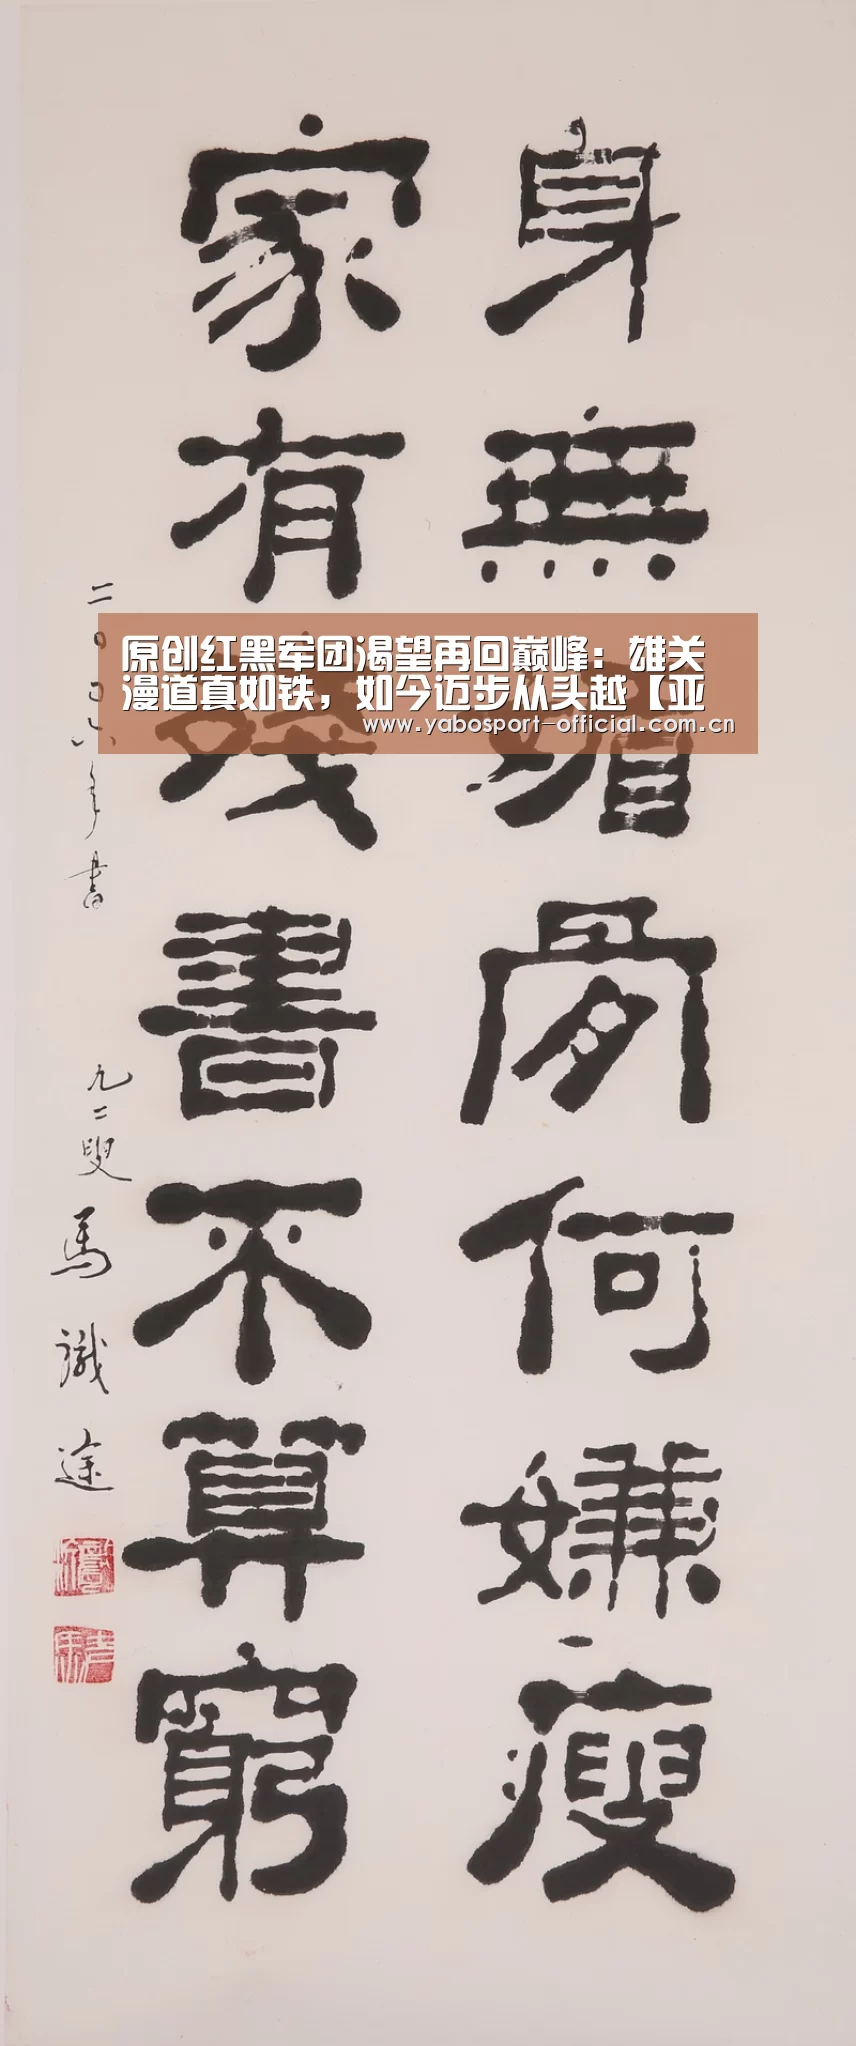 身無媚骨何嫌瘦
家有殘書不算窮
二〇〇六年書 九二叟 馬識途
原创红黑军团渴望再回巅峰：雄关
漫道真如铁，如今迈步从头越【亚
www.yabosport-official.com.cn